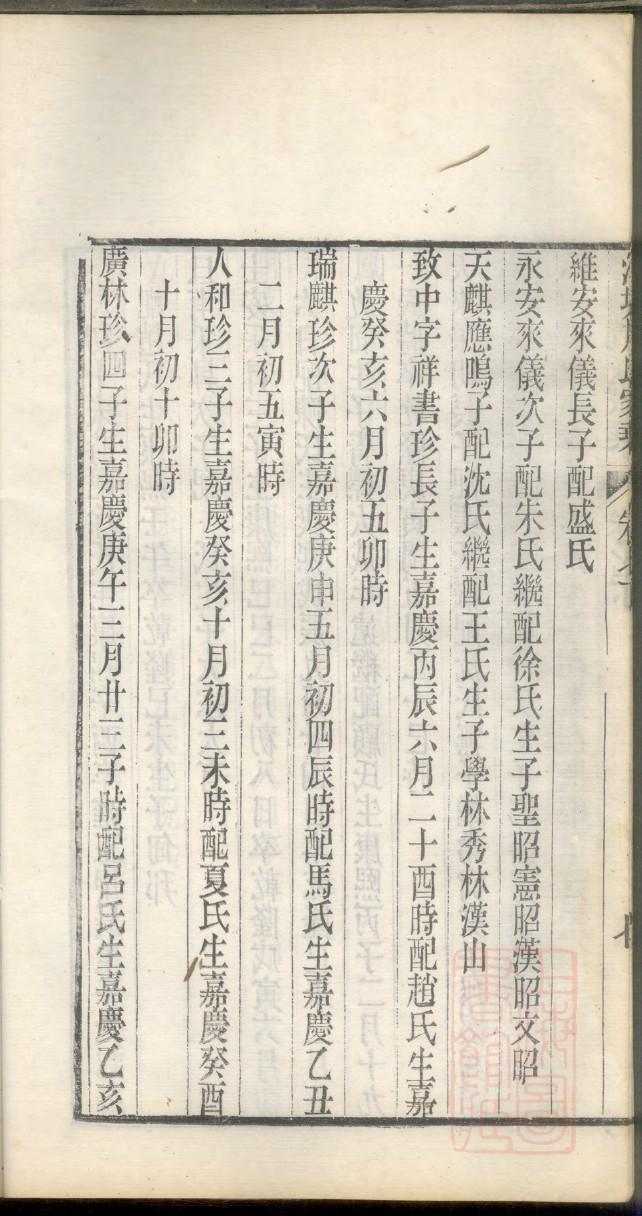 維安來儀長子配盛氏
永安來儀次子配朱氏繼配徐氏生子聖昭憲昭漢昭文昭
天麒應鳴子配沈氏繼配王氏生子學林秀林漢山
致中字祥書珍長子生嘉慶丙辰六月二十酉時配趙氏生嘉
慶癸亥六月初五卯時
瑞麒珍次子生嘉慶庚申五月初四辰時配馬氏生嘉慶乙丑
二月初五寅時
人和珍三子生嘉慶癸亥十月初三未時配夏氏生嘉慶癸酉
十月初十卯時
廣林珍四子生嘉慶庚午三月廿三子時配呂氏生嘉慶乙亥